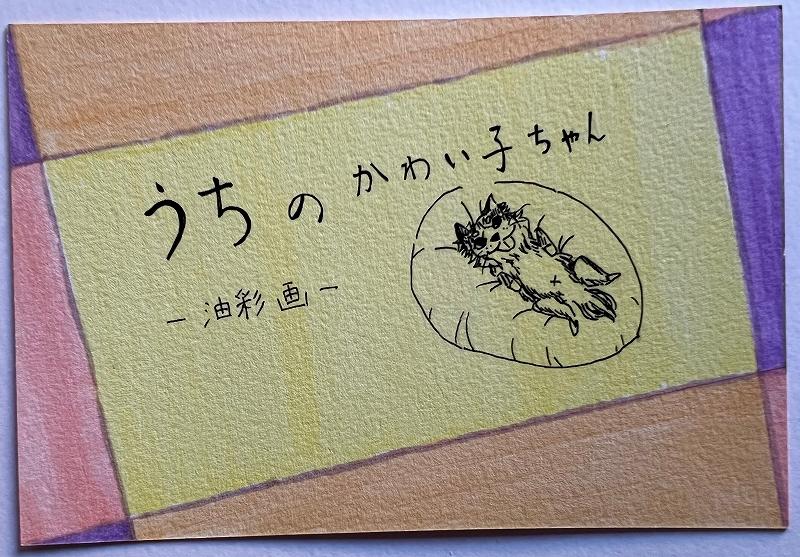 うちのかわい子ちゃん
－油彩画－